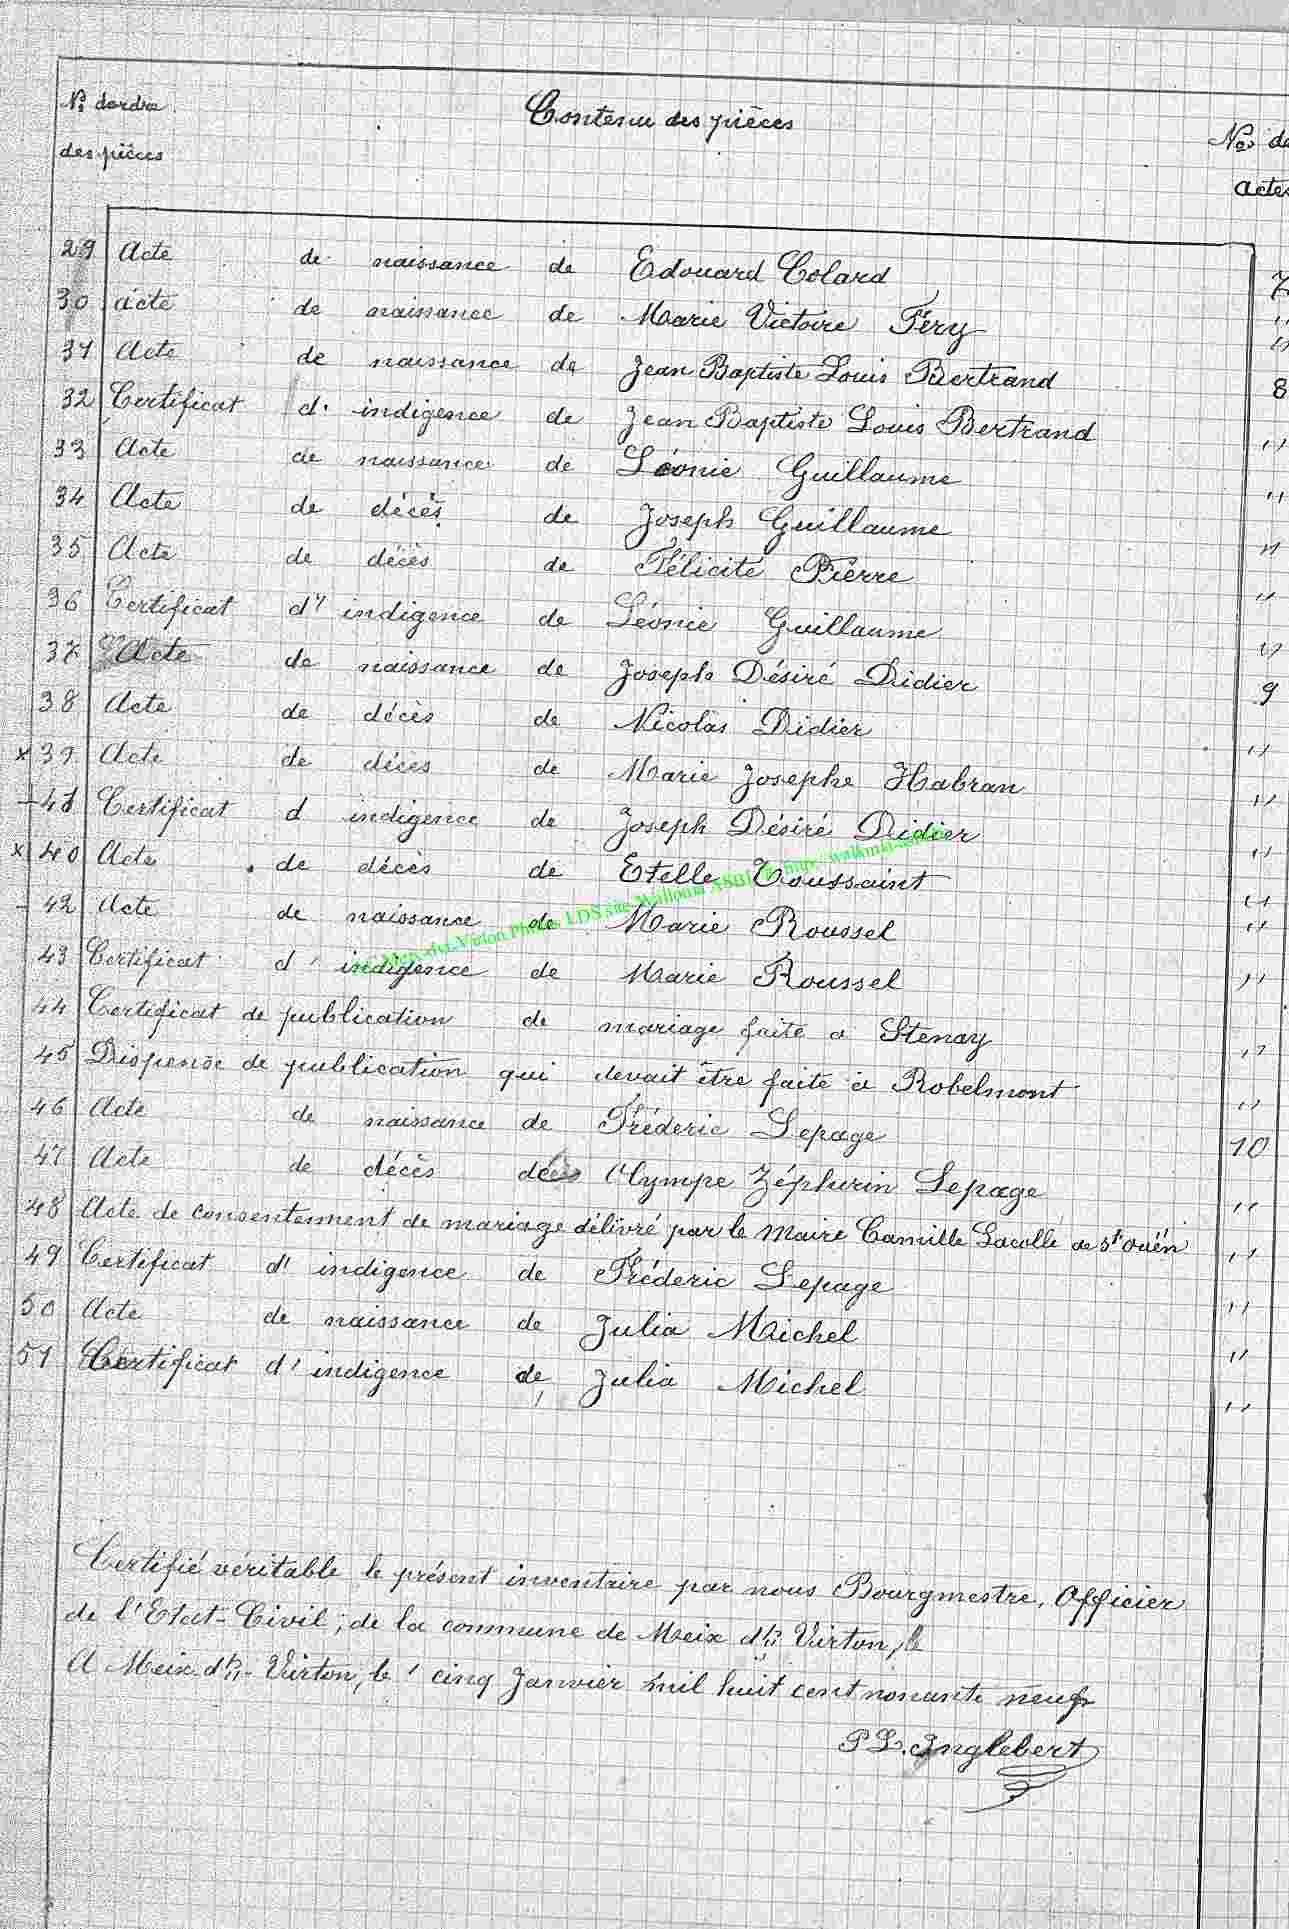 No d'ordre
des pièces
Contenu des pièces
Nos de
actes
29 Acte de naissance de Edouard Colard 7
30 acte de naissance de Marie Victoire Féry "
31 Acte de naissance de Jean Baptiste Louis Bertrand 8
32 Certificat d'indigence de Jean Baptiste Louis Bertrand "
33 Acte de naissance de Léonie Guillaume "
34 Acte de décès de Joseph Guillaume "
35 Acte de décès de Félicité Pierre "
36 Certificat d'indigence de Léonie Guillaume "
37 Acte de naissance de Joseph Désiré Didier 9
38 Acte de décès de Nicolas Didier "
x 39 Acte de décès de Marie Josephe Habran "
- 41 Certificat d indigence de Joseph Désiré Didier "
x 40 Acte de décès de Etelle Toussaint "
- 42 Acte de naissance de Marie Roussel "
43 Certificat d'indigence de Marie Roussel "
44 Certificat de publication de mariage faite a Stenay "
45 Dispense de publication qui devait être faite à Robelmont "
46 Acte de naissance de Fréderic Lepage 10
47 Acte de décès de Olympe Zéphirin Lepage "
48 Acte de consentement de mariage délivré par le Maire Camille Lacolle de St Ouën "
49 Certificat d'indigence de Fréderic Lepage "
50 Acte de naissance de Julia Michel "
51 Certificat d'indigence de Julia Michel "
Certifié véritable le présent inventaire par nous Bourgmestre, Officier
de l'Etat-Civil, de la commune de Meix dt Virton, le
A Meix-dt-Virton, le cinq Janvier mil huit cent nonante neuf
P L. Inglebert